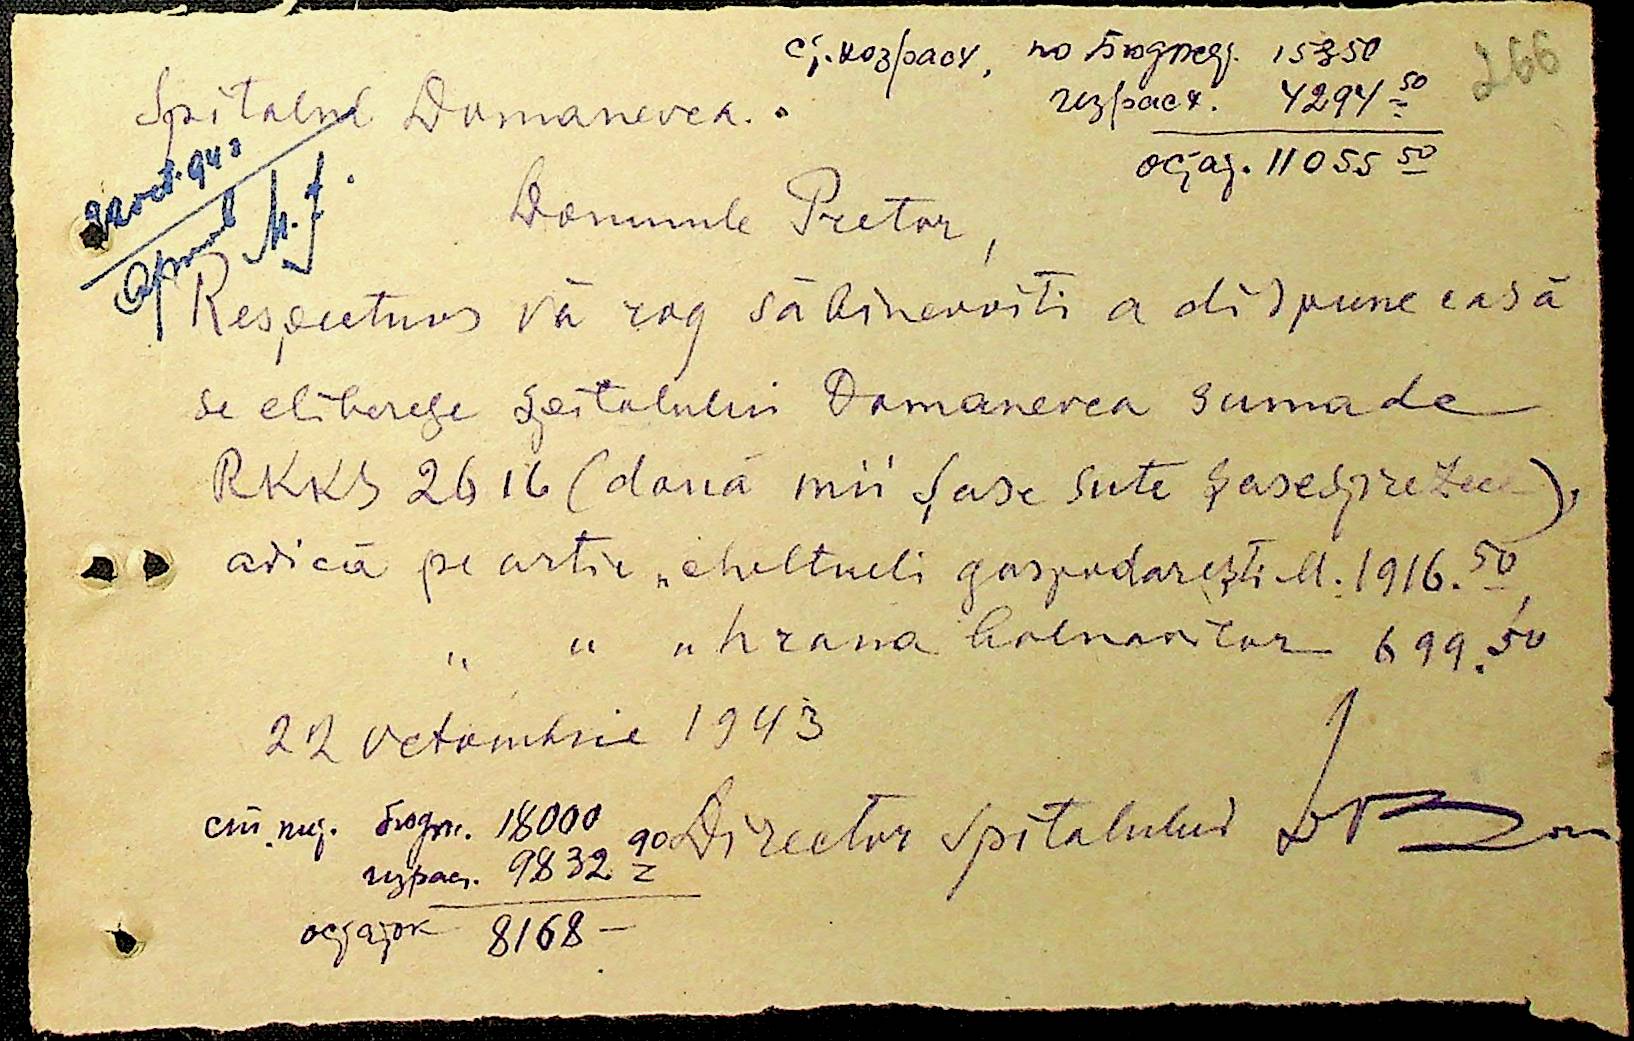 266
ст. хозрасх, по бюджед. 15350
израсх. 4294 50
остат. 11055 50
Spitalul Domanevca.
22 oct. 943
Aprob
Domnule Pretor,
Respectuos vă rog să binevoiti a dispune ca să
se elibereze spitalului Domanevca suma de
RKKS 2616 (două mii șase sute șasesprezece),
adică pe artic „cheltueli gospodarești M. 1916.50
" " „ hrana bolnavilor 699.50
22 octombrie 1943
ст. пит. бюдж. 18000
израс. 9832 90
остаток 8168 —
Director spitalului